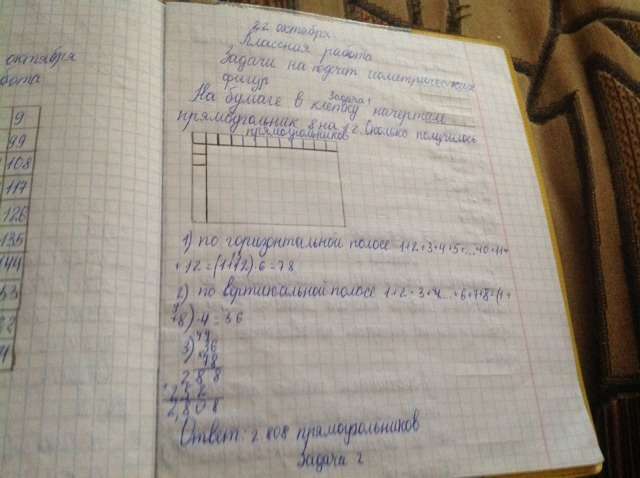 октября
бота
9
99
108
117
126
135
144
53
22 октября
Классная работа
Задачи на подсчёт геометрических
фигур
Задача 1
На бумаге в клетку начертили
прямоугольник 8 на 12. Сколько получилось
прямоугольников
1) по горизонтальной полосе 1+2+3+4+5+...+10+11+
+12=(1+12)·6=78
2) по вертикальной полосе 1+2+3+4...+6+7+8=(1+
+8)·4=36
3) 36
78
288
252
2808
Ответ: 2 808 прямоугольников
Задача 2